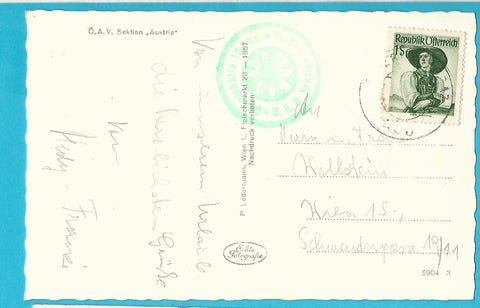 Ö.A.V. Sektion „Austria"
Von unserem Urlaub
die herzlichsten Grüße
von
Franzi
P. Ledermann, Wien I., Fleischmarkt 20 — 1957
Nachdruck verboten
Echte
Fotografie
Republik Österreich
1S
An
Herrn u. Frau
Wien 15.,
Schwendergasse 19/11
5904 3